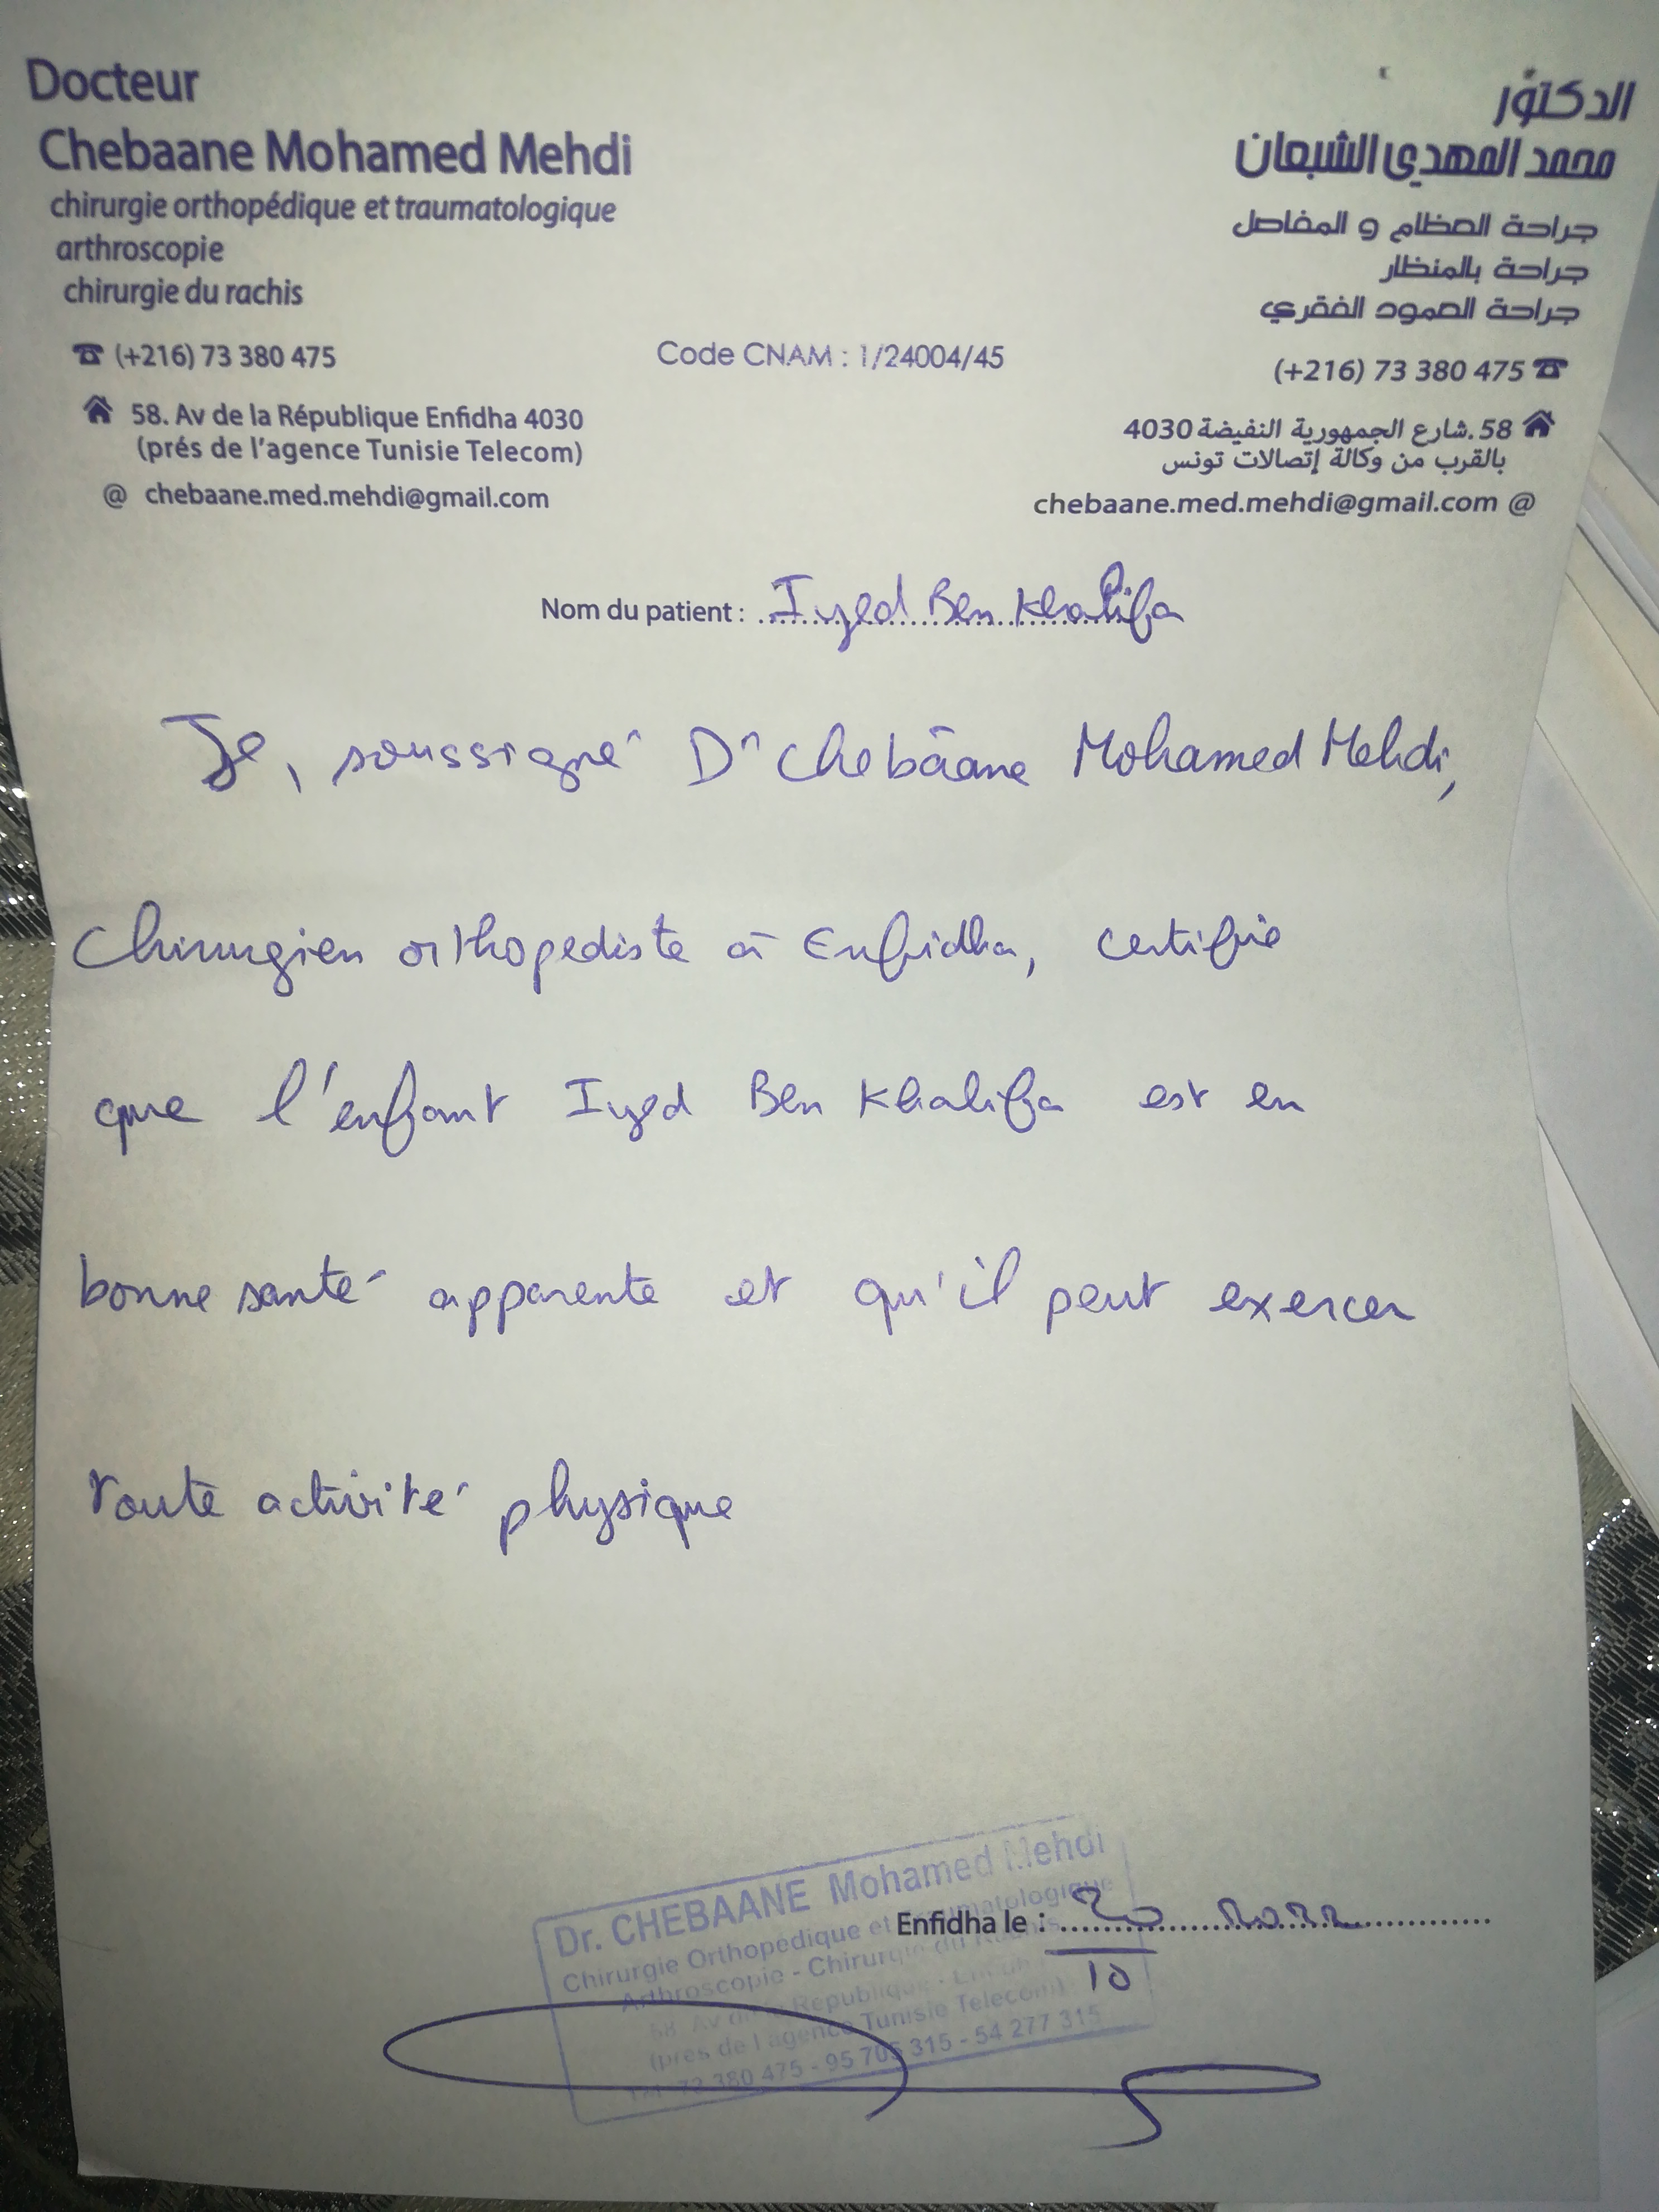 Docteur
Chebaane Mohamed Mehdi
chirurgie orthopédique et traumatologique
arthroscopie
chirurgie du rachis
(+216) 73 380 475
58. Av de la République Enfidha 4030
(prés de l'agence Tunisie Telecom)
@ chebaane.med.mehdi@gmail.com
Code CNAM : 1/24004/45
الدكتور
محمد المهدي الشبعان
جراحة العظام و المفاصل
جراحة بالمنظار
جراحة العمود الفقري
(+216) 73 380 475
58.شارع الجمهورية النفيضة 4030
بالقرب من وكالة إتصالات تونس
chebaane.med.mehdi@gmail.com @
Nom du patient : Iyed Ben Khalifa
Je, soussigné Dr Chebâane Mohamed Mehdi,
Chirurgien orthopediste à Enfidha, certifie
que l'enfant Iyed Ben Khalifa est en
bonne santé apparente et qu'il peut exercer
toute activité physique
Enfidha le : 20 2022
10
Dr. CHEBAANE Mohamed Mehdi
Chirurgie Orthopedique et Traumatologique
Arthroscopie - Chirurgie du Rachis
58 Av de la République - Enfidha
(près de l'agence Tunisie Telecom)
Tél. 73 380 475 - 95 705 315 - 54 277 315